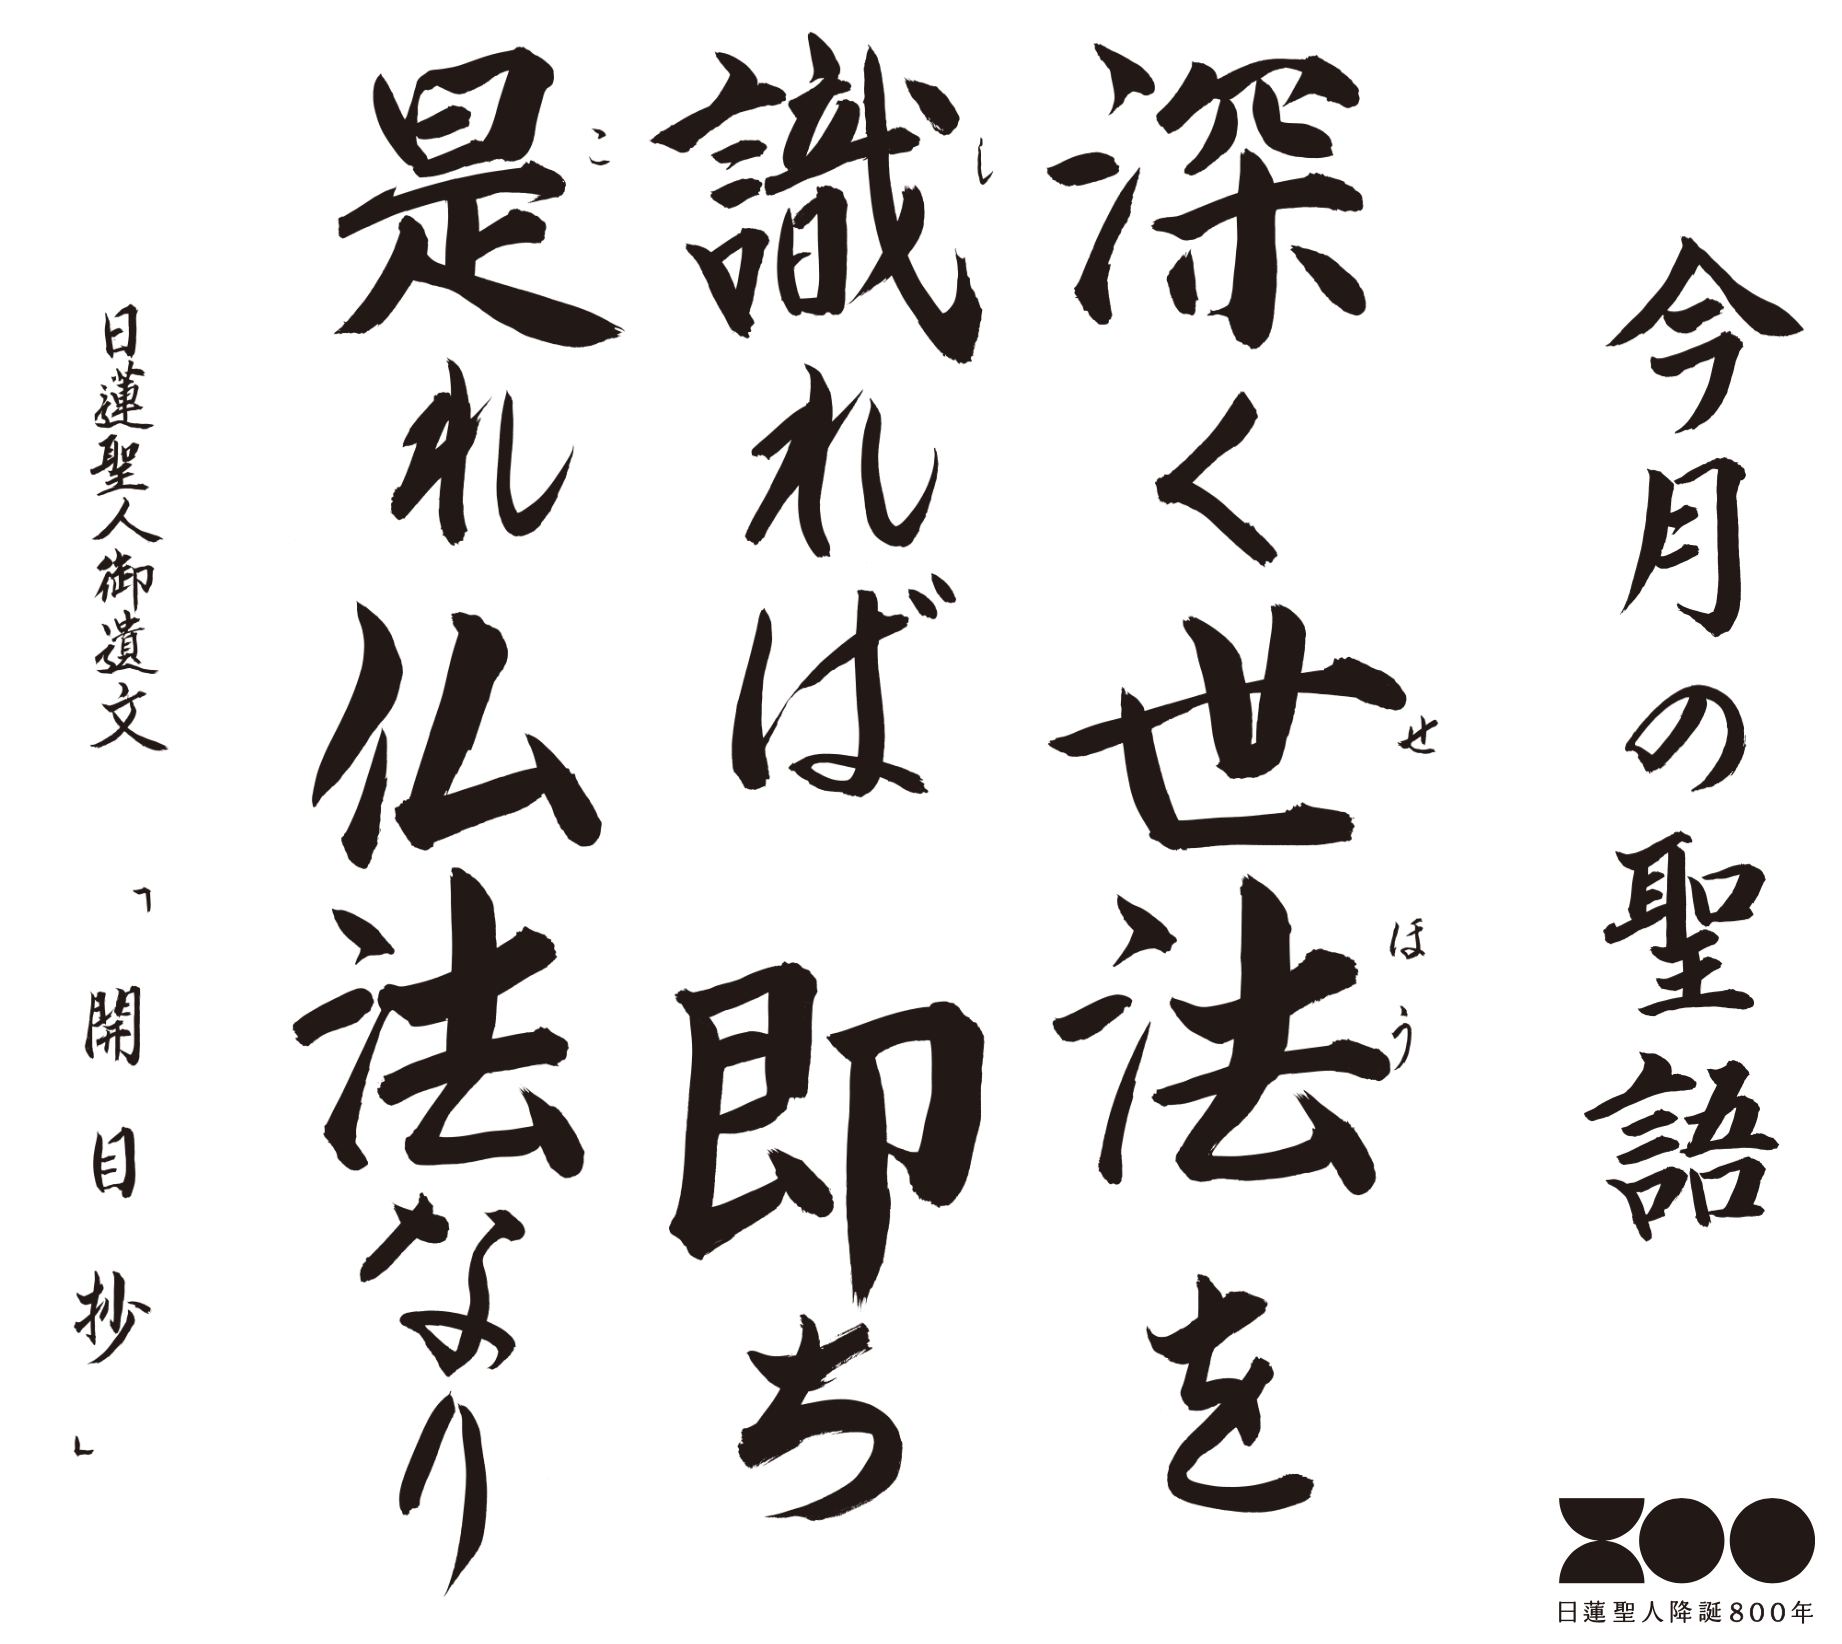 今月の聖語
深く世法を
せほう
識れば即ち
し
是れ仏法なり
こ
日蓮聖人御遺文「開目抄」
800
日蓮聖人降誕800年